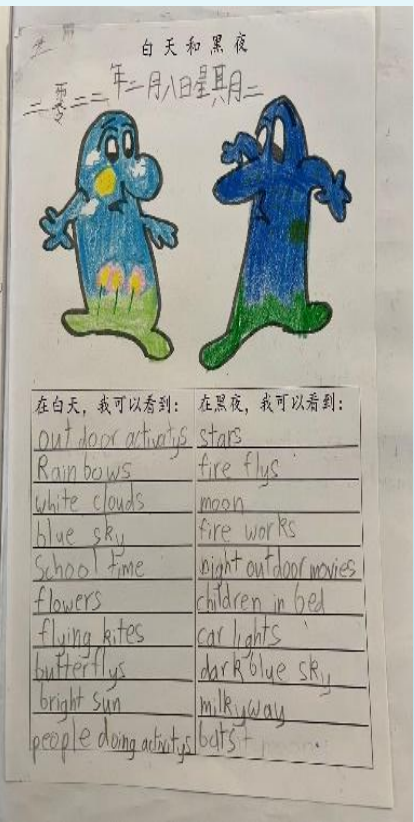 白天和黑夜
二零二二年二月八日星期二
在白天，我可以看到： 在黑夜，我可以看到：
out door activatys stars
Rainbows fire flys
white clouds moon
blue sky fire works
School time night outdoor movies
flowers children in bed
flying kites car lights
butterflys dark blue sky
bright sun milkyway
people doing activitys bats